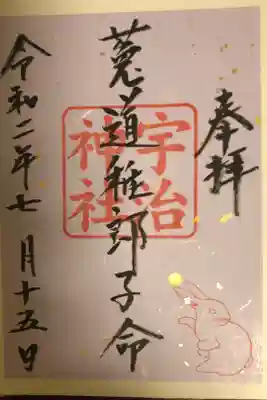 奉拝
菟道稚郎子命
宇治神社
令和二年七月十五日